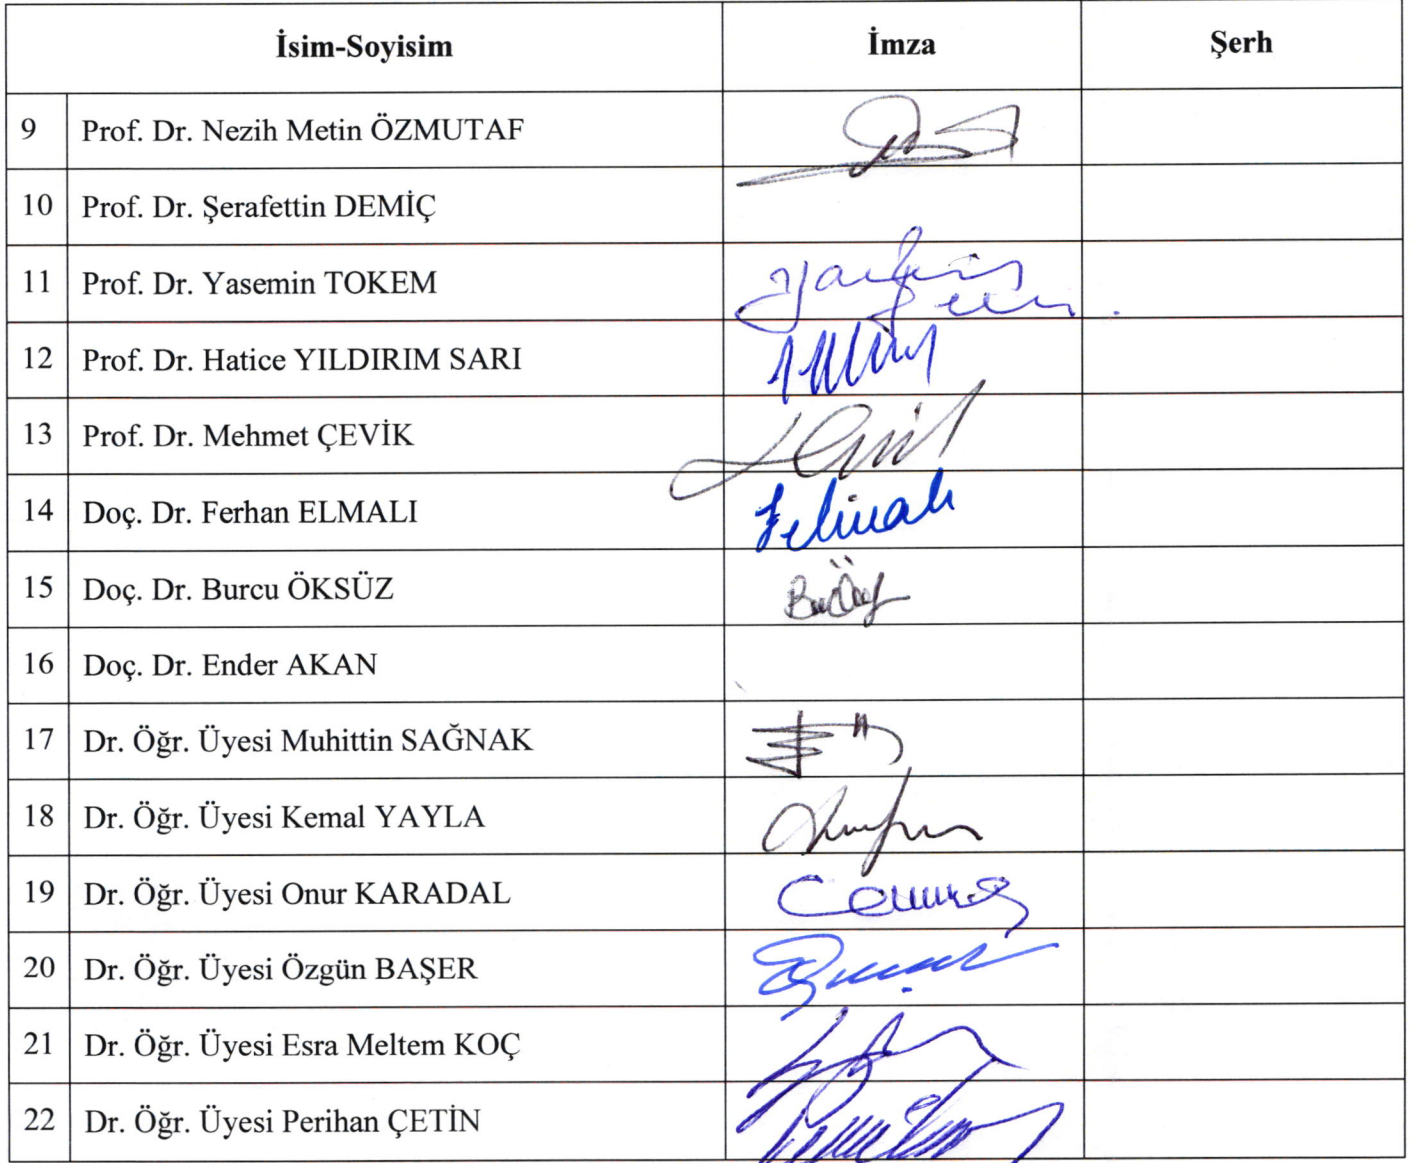 İsim-Soyisim İmza Şerh
9 Prof. Dr. Nezih Metin ÖZMUTAF
10 Prof. Dr. Şerafettin DEMİÇ
11 Prof. Dr. Yasemin TOKEM
12 Prof. Dr. Hatice YILDIRIM SARI
13 Prof. Dr. Mehmet ÇEVİK
14 Doç. Dr. Ferhan ELMALI
15 Doç. Dr. Burcu ÖKSÜZ
16 Doç. Dr. Ender AKAN
17 Dr. Öğr. Üyesi Muhittin SAĞNAK
18 Dr. Öğr. Üyesi Kemal YAYLA
19 Dr. Öğr. Üyesi Onur KARADAL
20 Dr. Öğr. Üyesi Özgün BAŞER
21 Dr. Öğr. Üyesi Esra Meltem KOÇ
22 Dr. Öğr. Üyesi Perihan ÇETİN